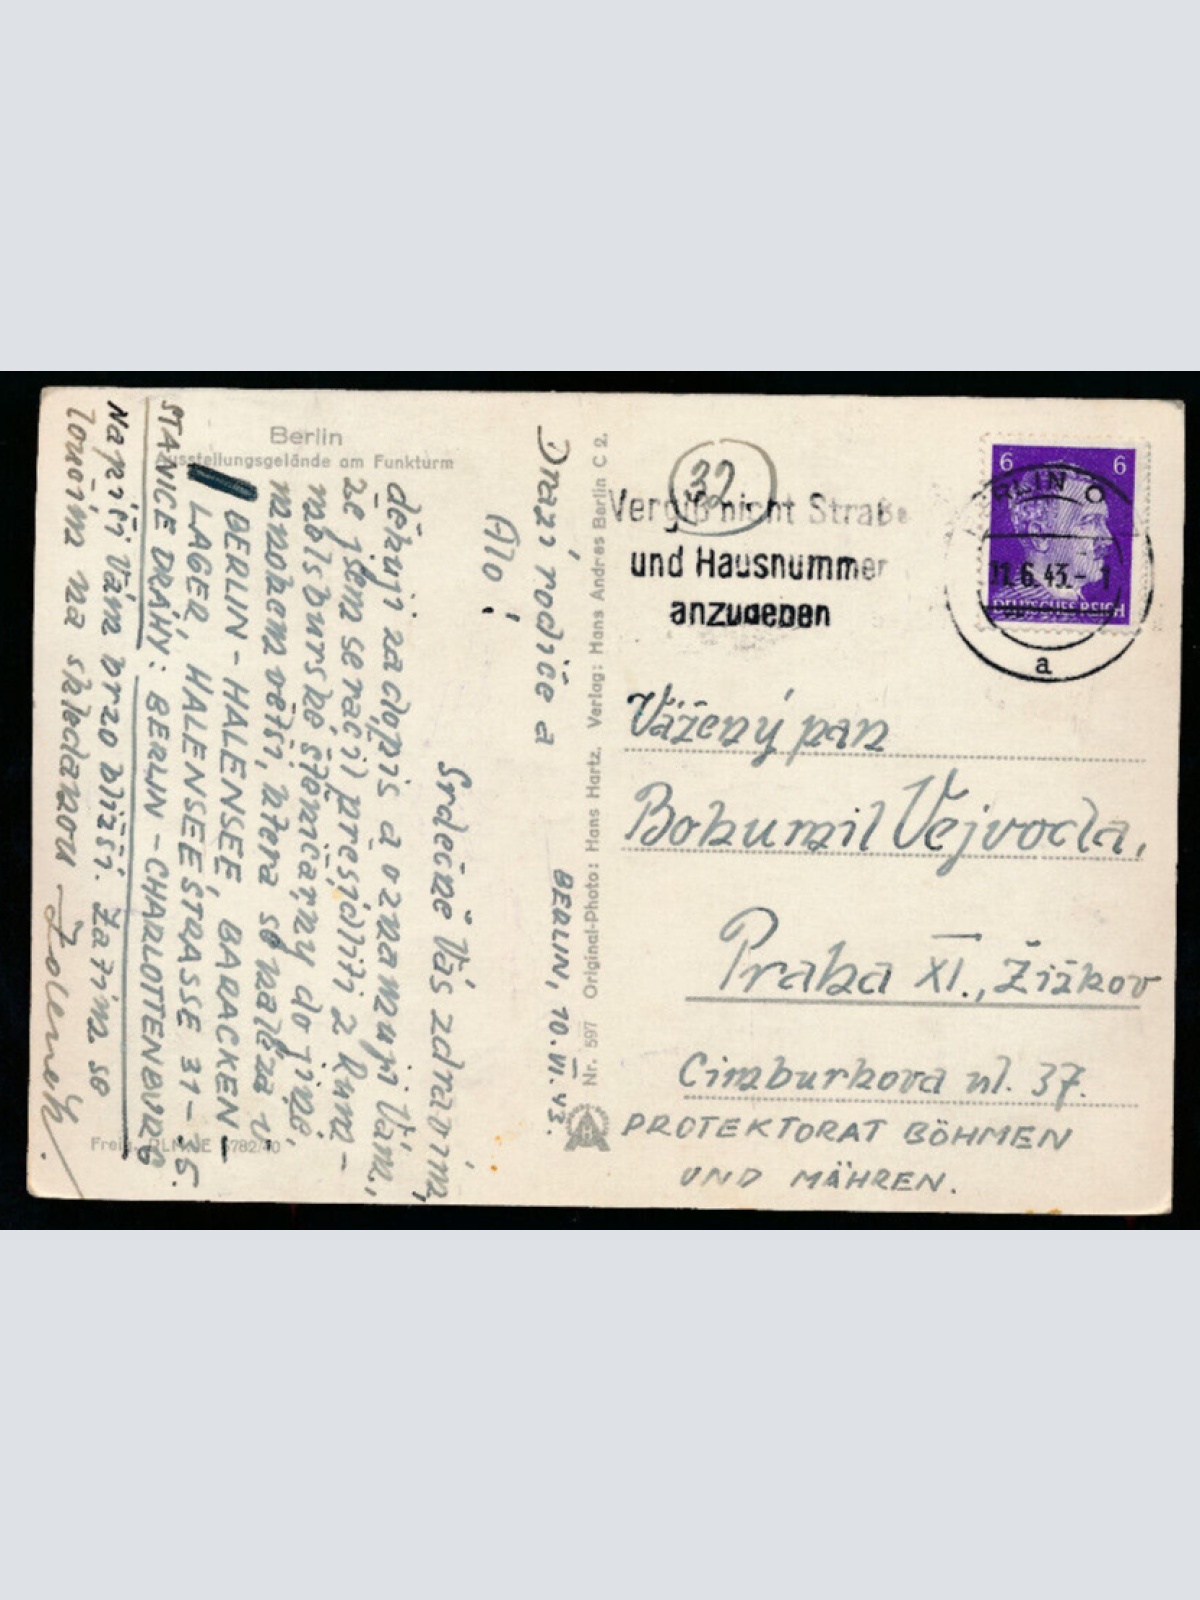 Berlin
Ausstellungsgelände am Funkturm
BERLIN, 10. VI. 43.
Drazí rodiče a
Alo!
Srdečně Vás zdravím,
děkuji za dopis a oznamuji Vám,
že jsem se ráčil přesídliti z Kum-
štičárny do jiné,
mnohem větší, která se nalézá v
BERLIN - HALENSEE, BARACKEN -
LAGER, HALENSEESTRASSE 31-35.
STANICE DRÁHY: BERLIN - CHARLOTTENBURG
Napíši Vám brzo bližší. Zatím se
loučím na shledanou
Nr. 597 Original-Photo: Hans Hartz. Verlag: Hans Andres Berlin C 2.
32
Vergiß nicht Straße
und Hausnummer
anzugeben
6 6
BERLIN O
11.6.43.- 1
DEUTSCHES REICH
a
Vážený pan
Bohumil Vejvoda,
Praha XI., Žižkov
Cimburkova ul. 37.
PROTEKTORAT BÖHMEN
UND MÄHREN.